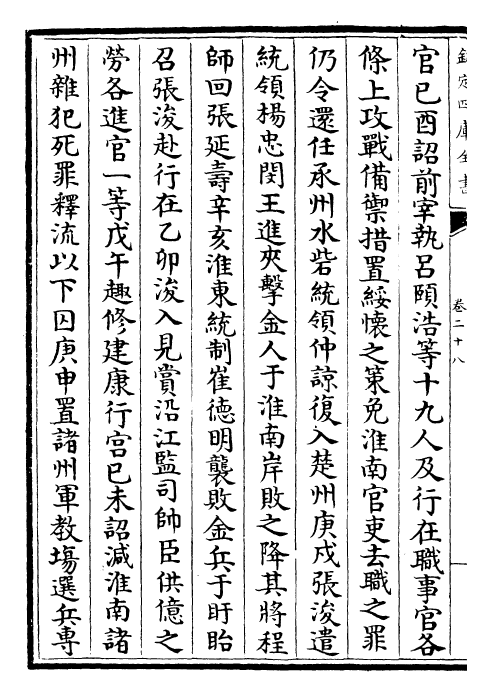 欽定四庫全書
卷二十八
官已酉詔前宰執呂頤浩等十九人及行在職事官各
條上攻戰備禦措置綏懷之策免淮南官吏去職之罪
仍令還任承州水砦統領仲諒復入楚州庚戌張浚遣
統領楊忠閔王進夾擊金人于淮南岸敗之降其將程
師回張延壽辛亥淮東統制崔德明襲敗金兵于盱眙
召張浚赴行在乙卯浚入見賞沿江監司帥臣供億之
勞各進官一等戊午趣修建康行宮已未詔減淮南諸
州雜犯死罪釋流以下囚庚申置諸州軍教塲選兵專